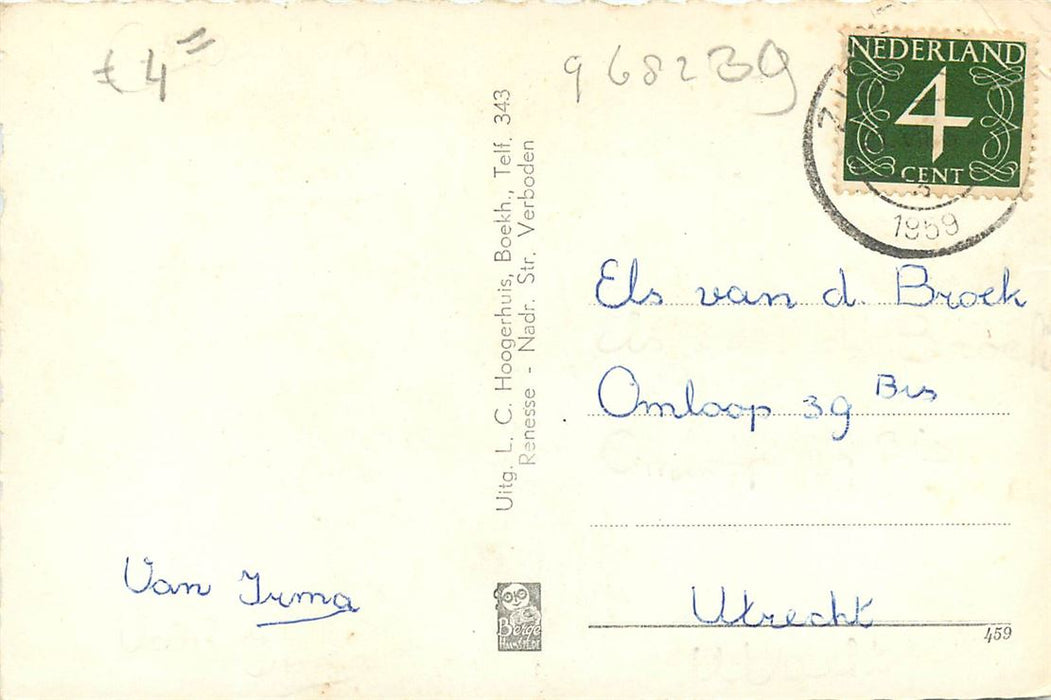 € 4 =
968239
NEDERLAND
4
CENT
1959
Uitg. L. C. Hoogerhuis, Boekh., Telf. 343
Renesse - Nadr. Str. Verboden
Els van d. Broek
Omloop 39 Bis
Utrecht
Van Irma
Berge
459